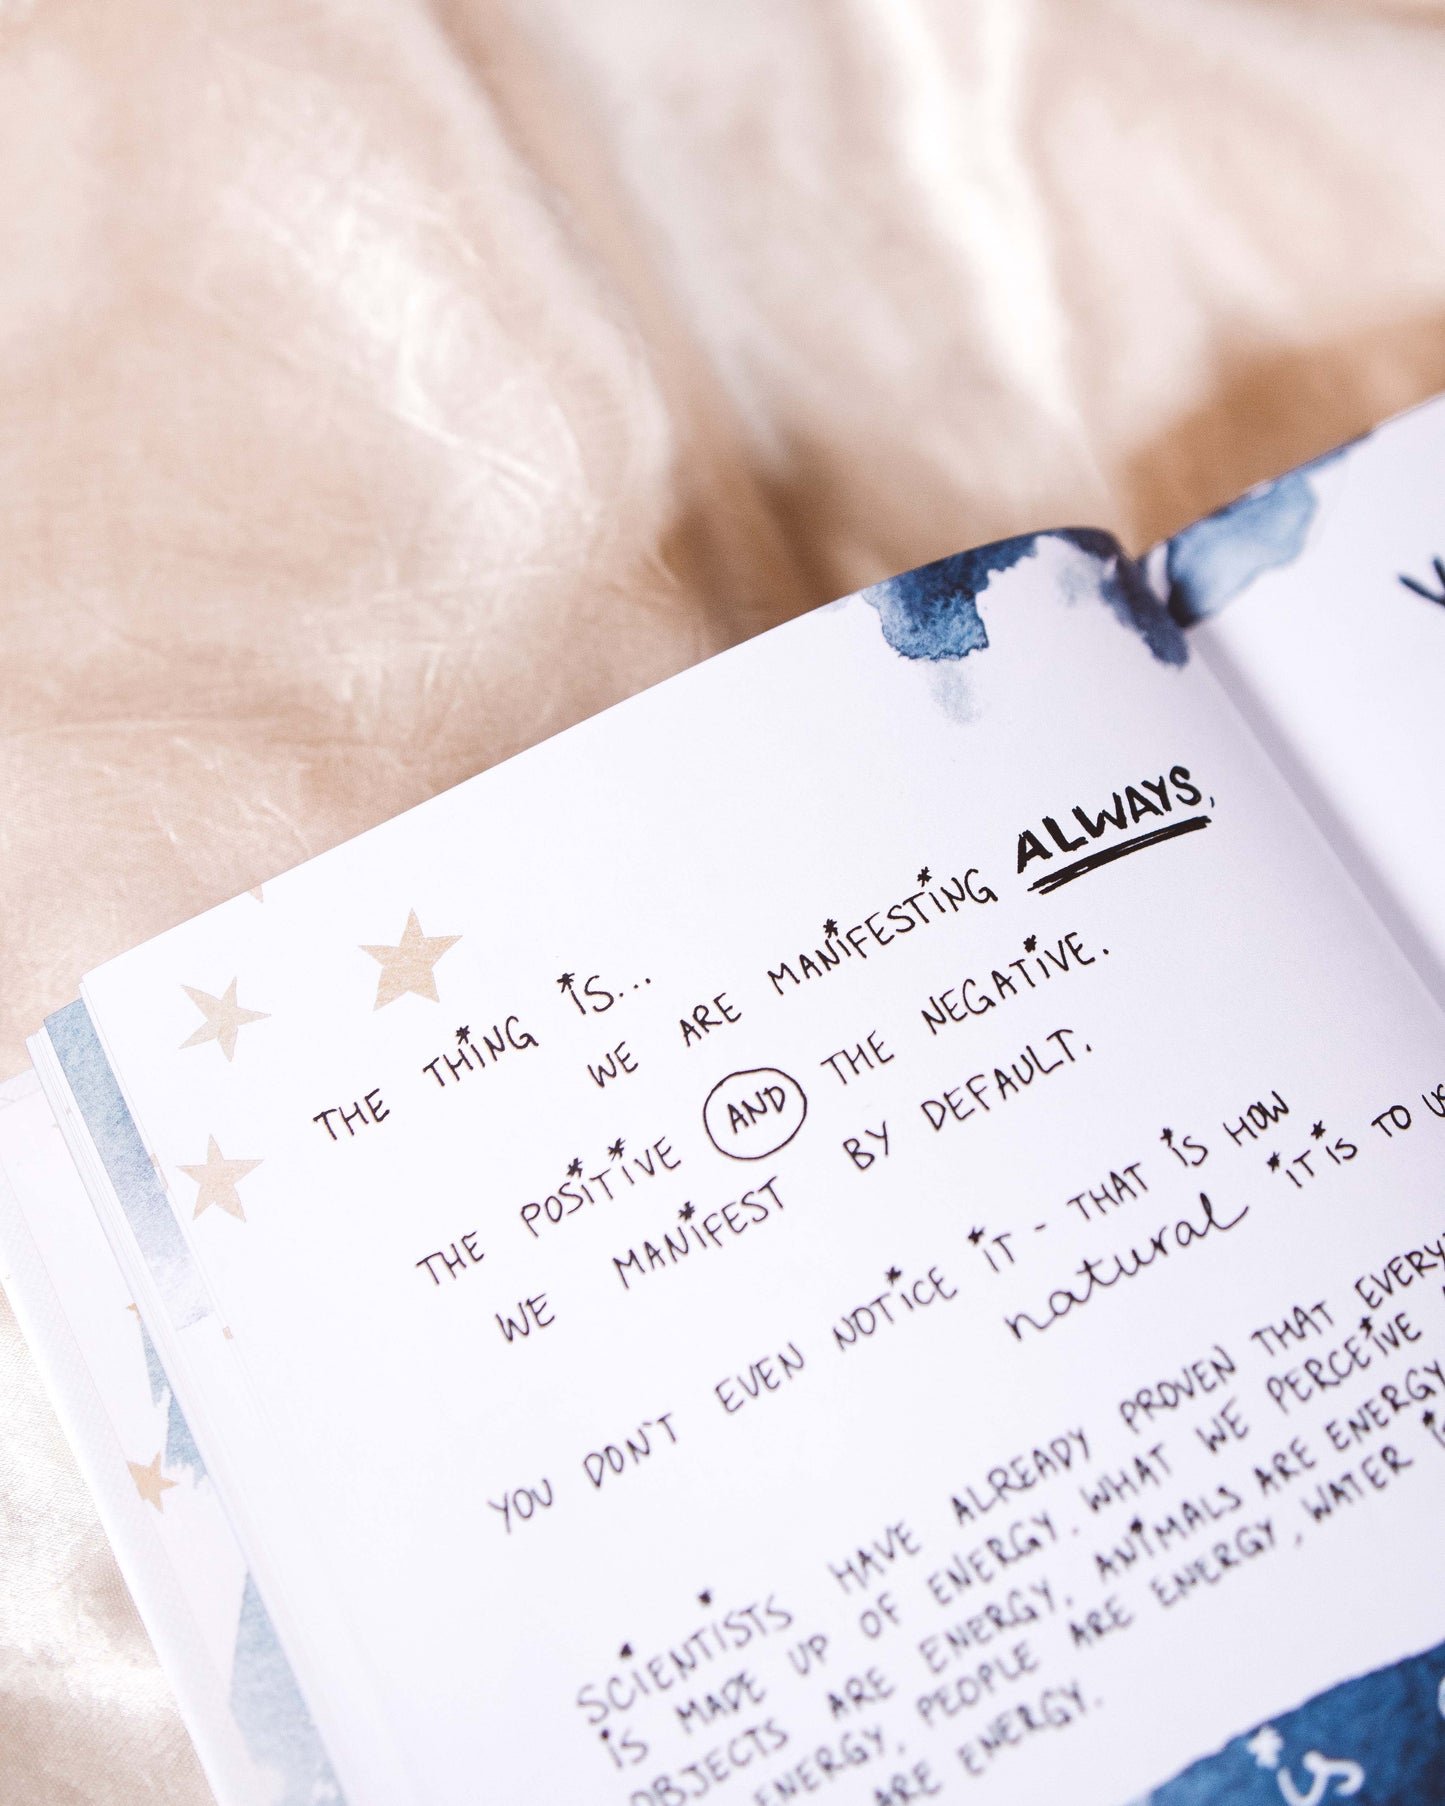 THE THING IS...
WE ARE MANIFESTING ALWAYS,
THE POSITIVE AND THE NEGATIVE.
WE MANIFEST BY DEFAULT.
YOU DON'T EVEN NOTICE IT - THAT IS HOW
natural IT IS TO US
SCIENTISTS HAVE ALREADY PROVEN THAT EVERY
IS MADE UP OF ENERGY. WHAT WE PERCEIVE
OBJECTS ARE ENERGY, ANIMALS ARE ENERGY
ENERGY, PEOPLE ARE ENERGY, WATER IS
ARE ENERGY.
is